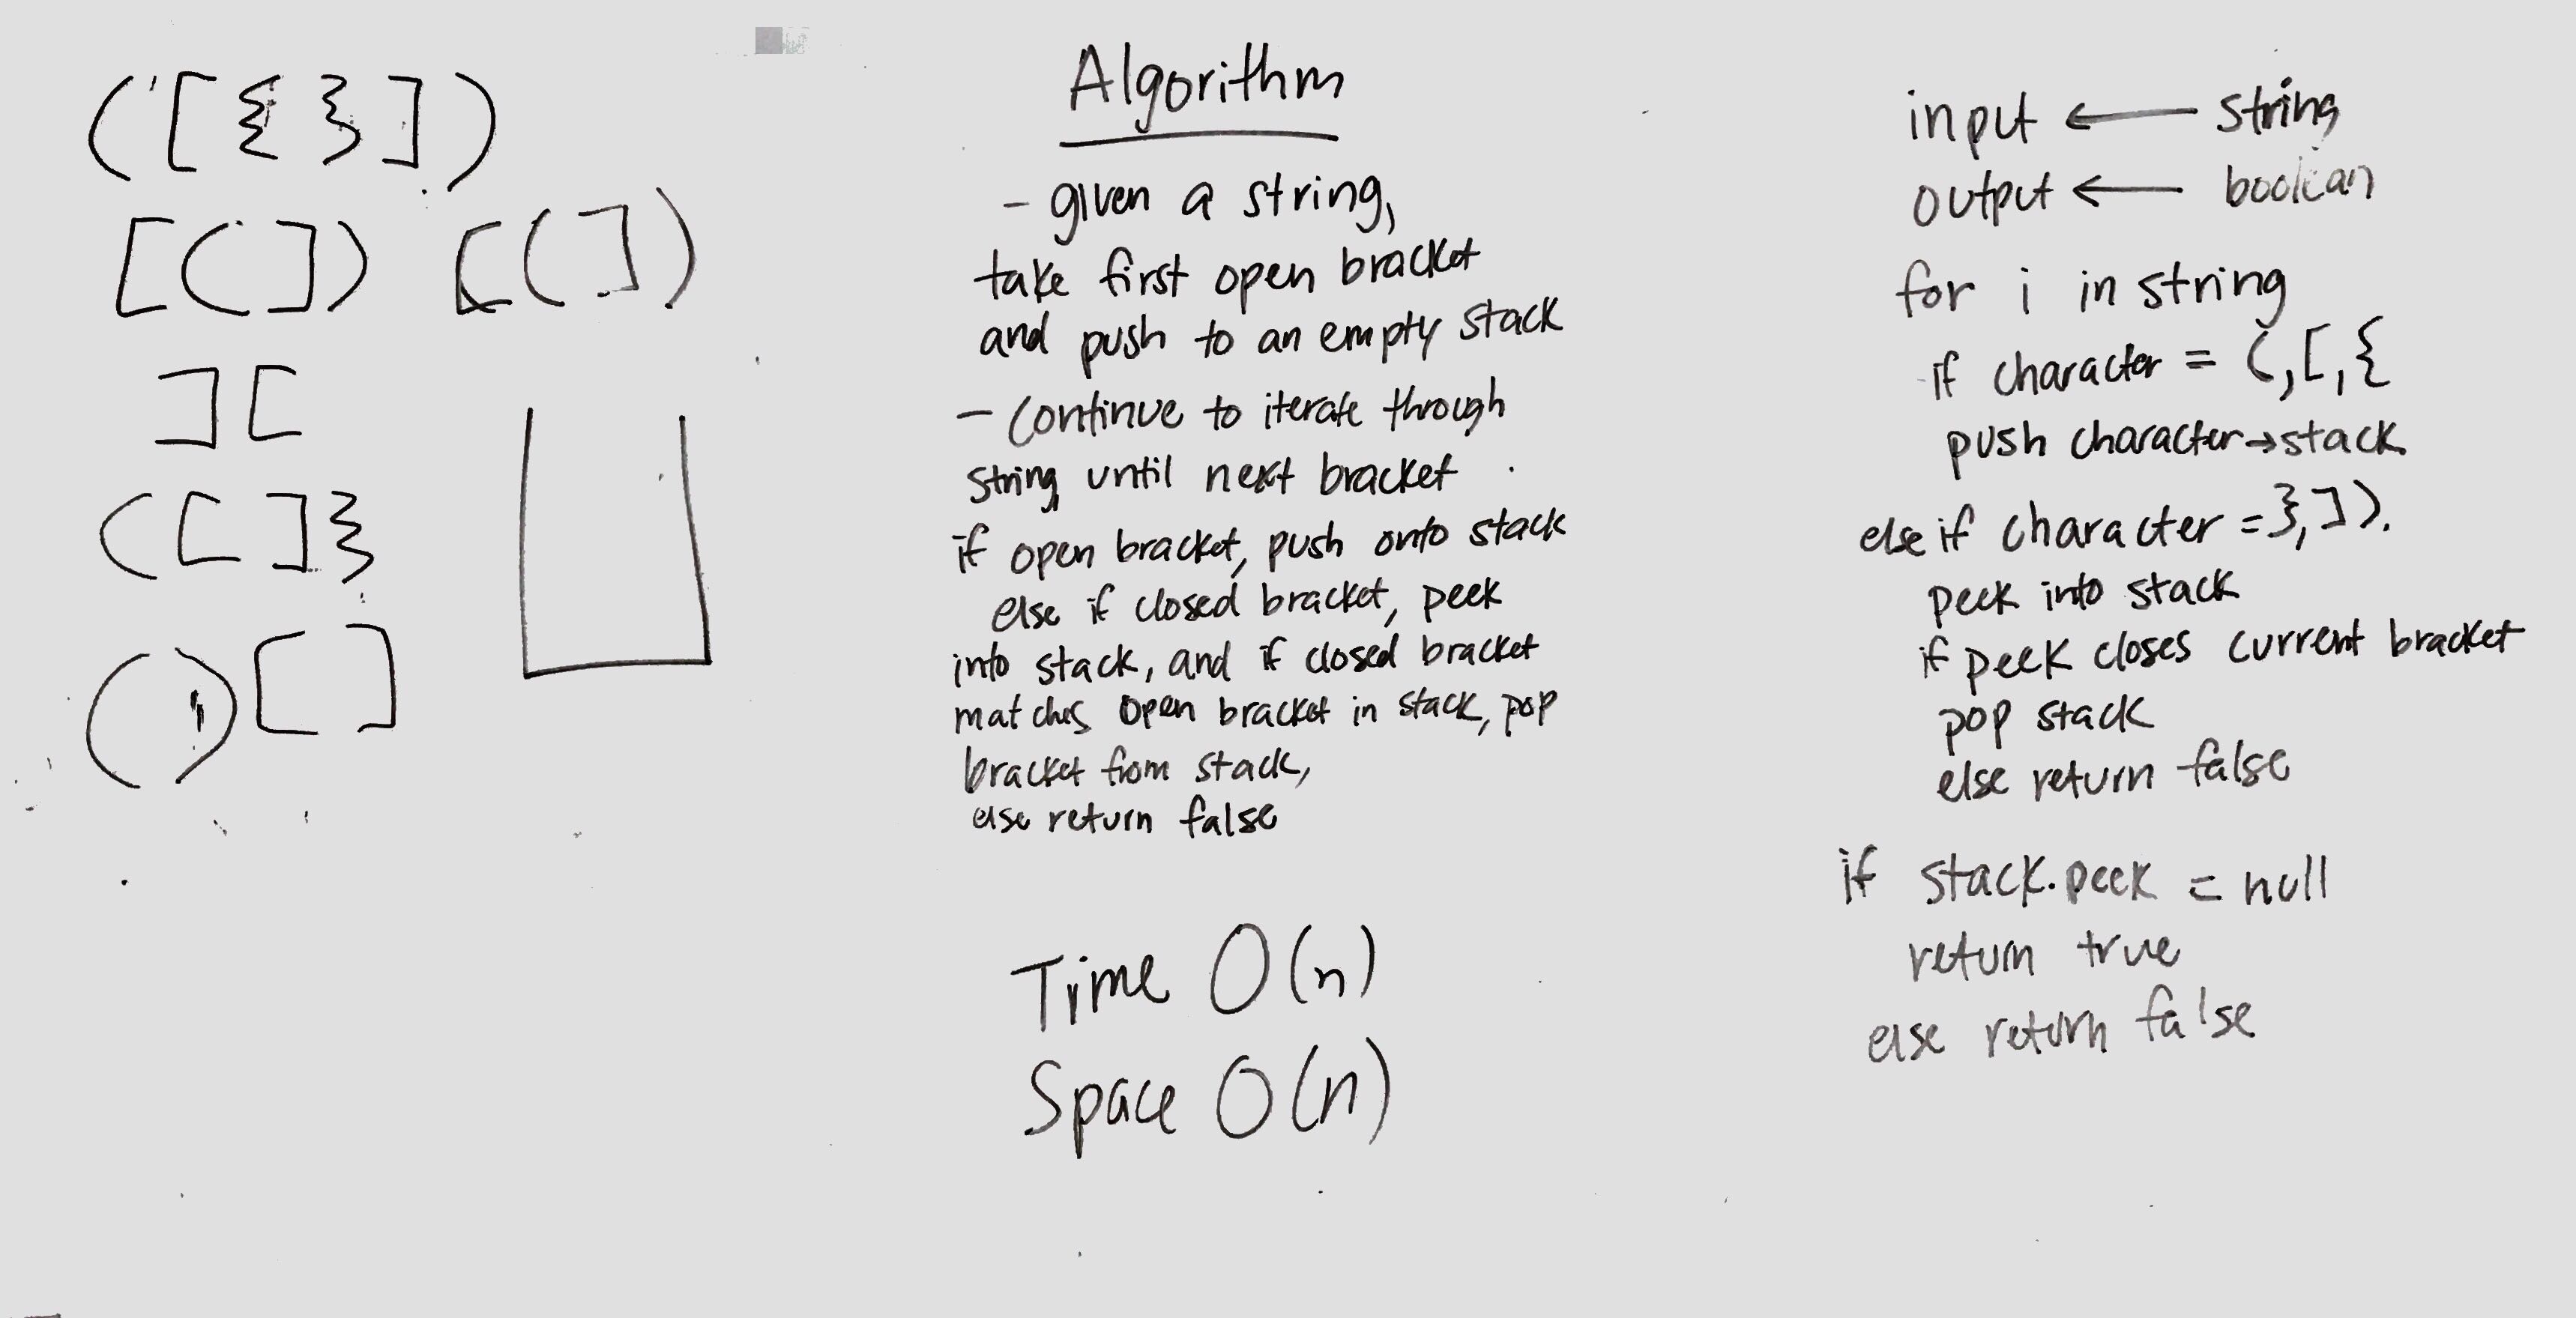 ([{}])
[(]) [(])
][
([]}
()[]
Algorithm
- given a string,
take first open bracket
and push to an empty stack
- Continue to iterate through
string until next bracket
if open bracket, push onto stack
else if closed bracket, peek
into stack, and if closed bracket
matches open bracket in stack, pop
bracket from stack,
else return false
Time O(n)
Space O(n)
input ← string
output ← boolean
for i in string
if character = (,[,{
push character→stack
else if character =},]).
peek into stack
if peek closes current bracket
pop stack
else return false
if stack.peek = null
return true
else return false